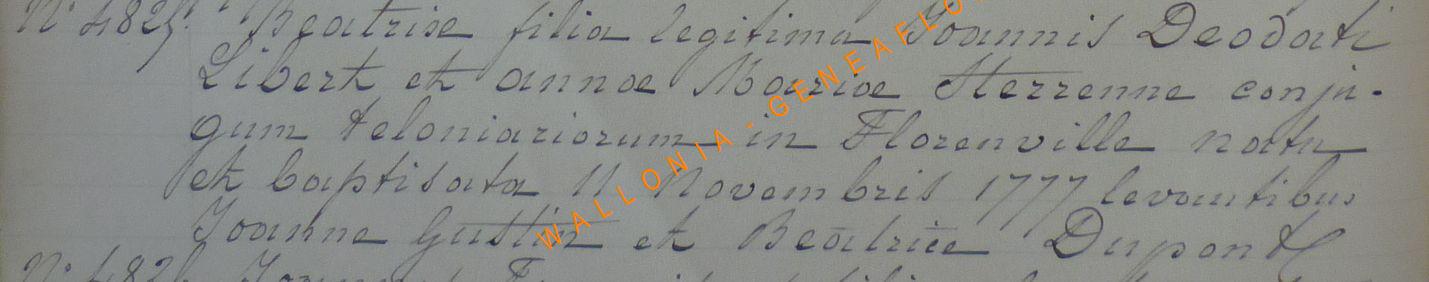 N° 4825. Beatrise filia legitima Joannis Deodati
Libert et annoe Marioe Sterrenne conju-
gum teloniariorum in Florenville nata
et baptisata 11 Novembris 1777 levantibus
Joanne Gustin et Beatrice Dupont
N° 482
WALLONIA-GENEAFLO